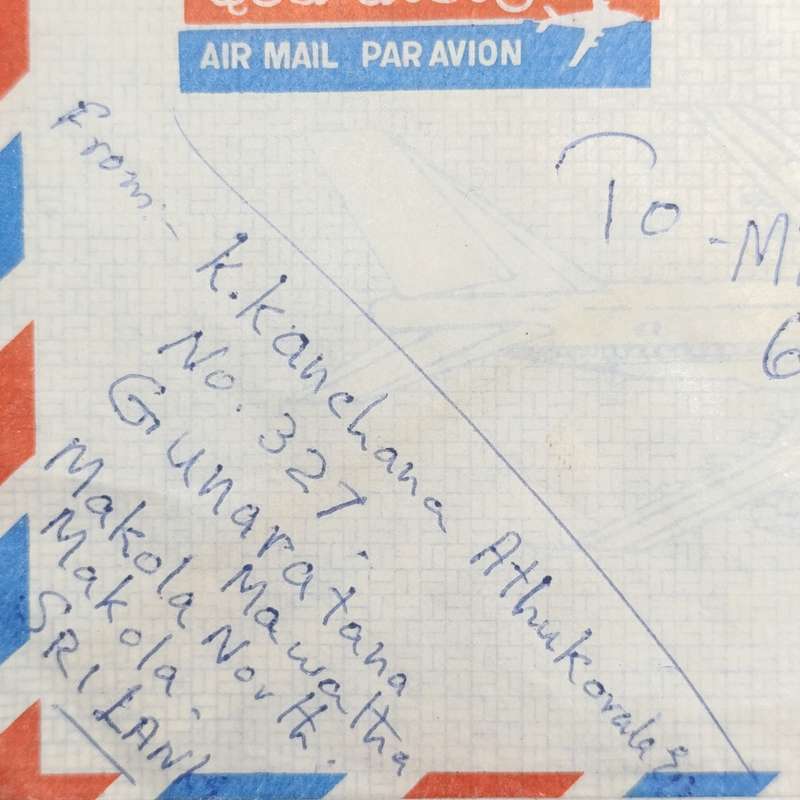 AIR MAIL PAR AVION
From:-
K. Kanchana Athukorala
No. 327.
Gunaratana Mawatha
Makola North.
Makola.
SRI LAN
To
-M